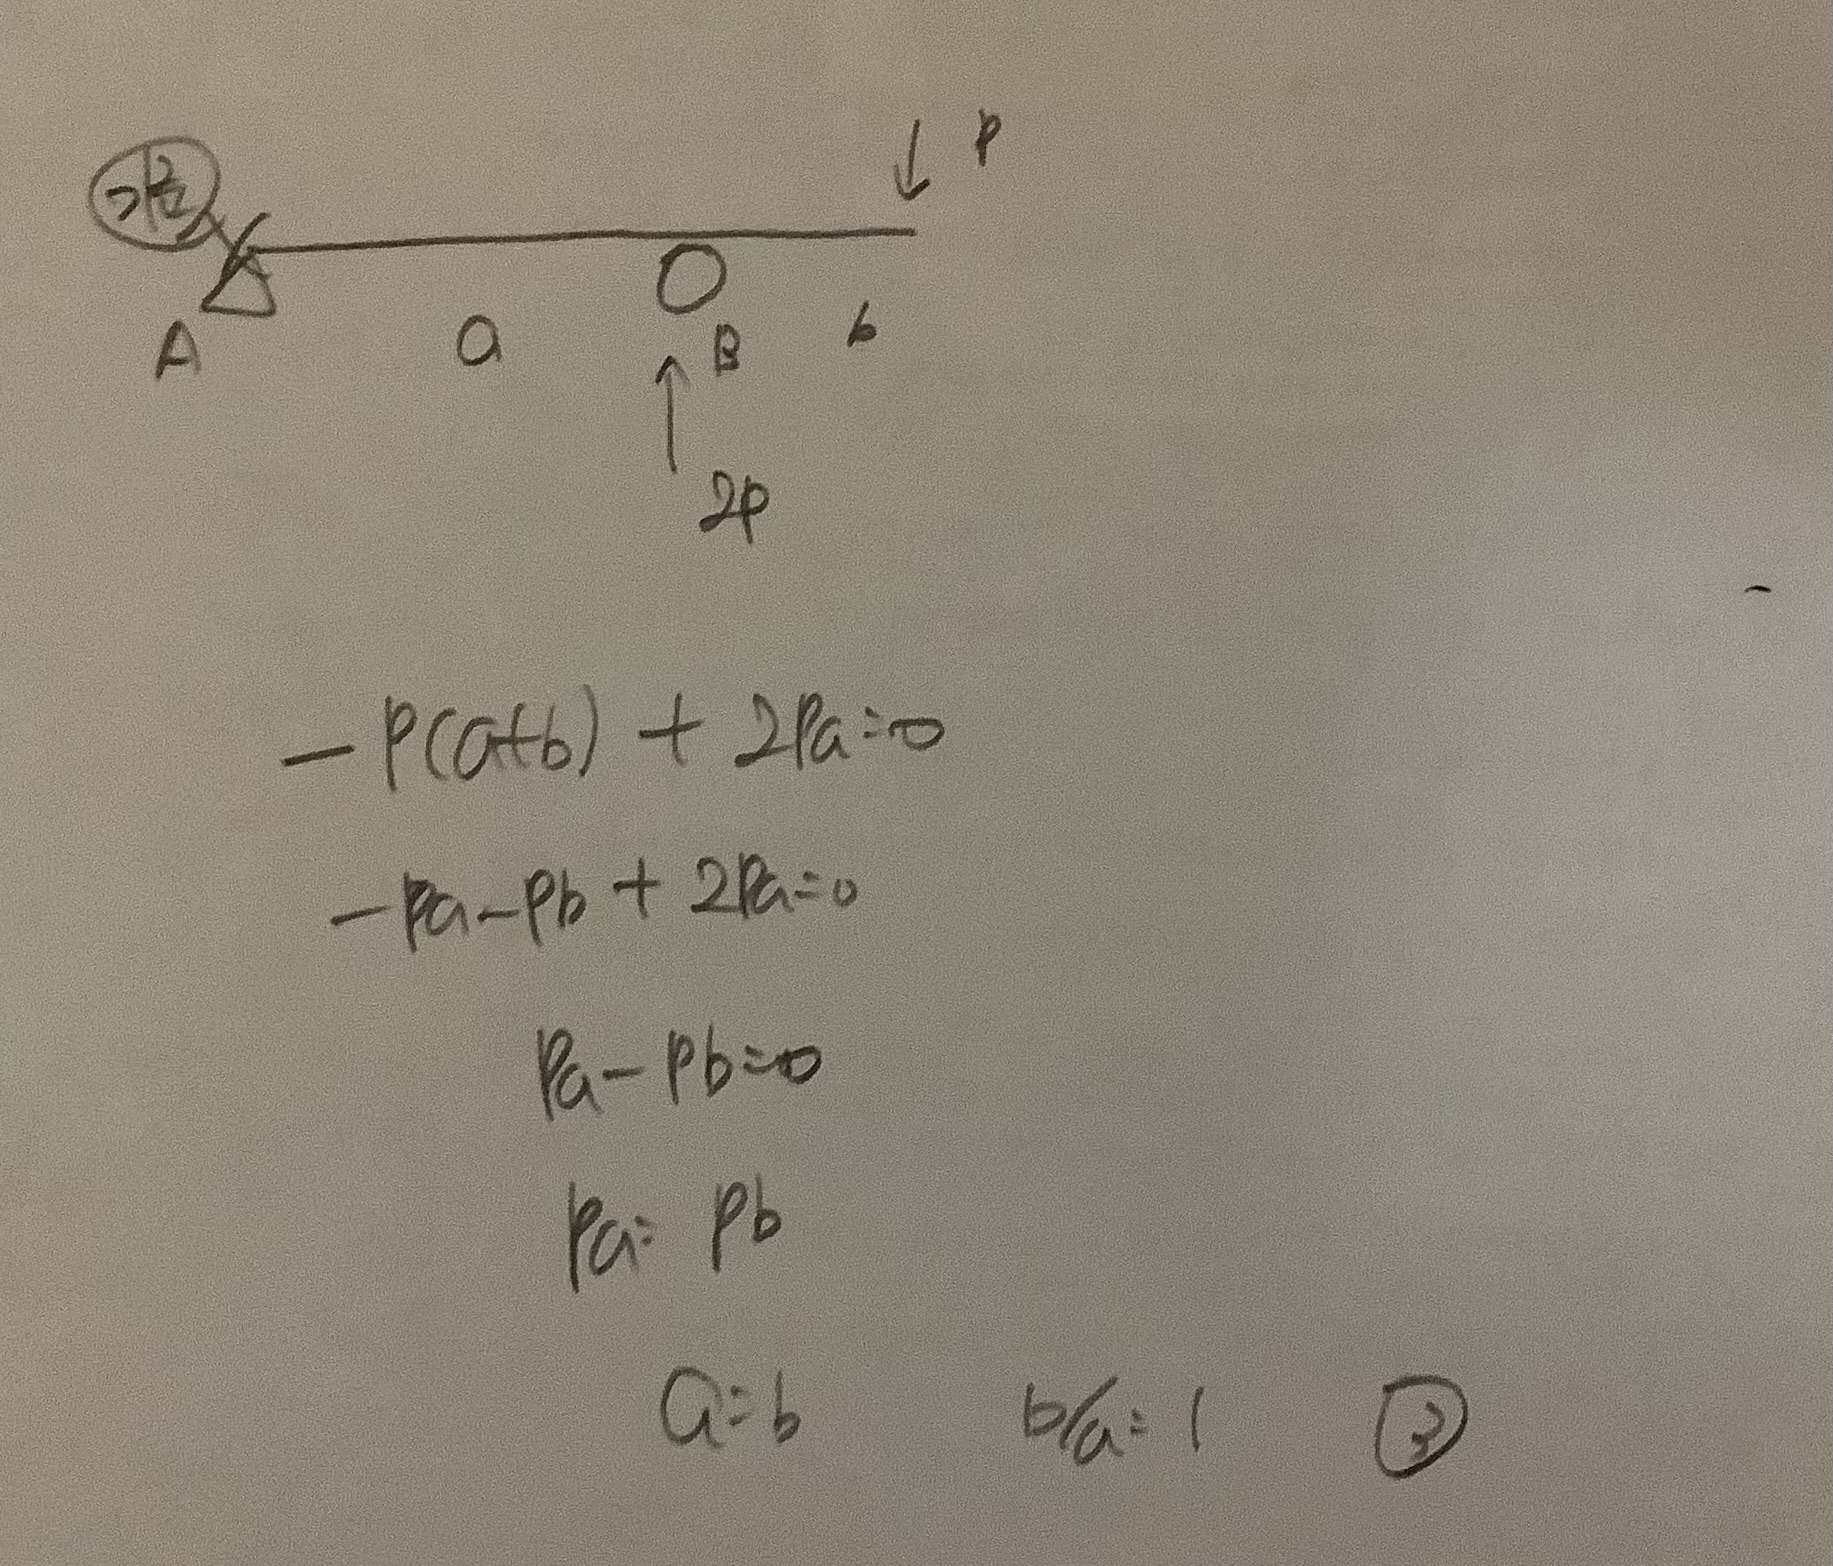 기준
P
A
a
B
b
2P
-P(a+b) + 2Pa=0
-Pa-Pb + 2Pa=0
Pa-Pb=0
Pa= Pb
a=b b/a=1 ③